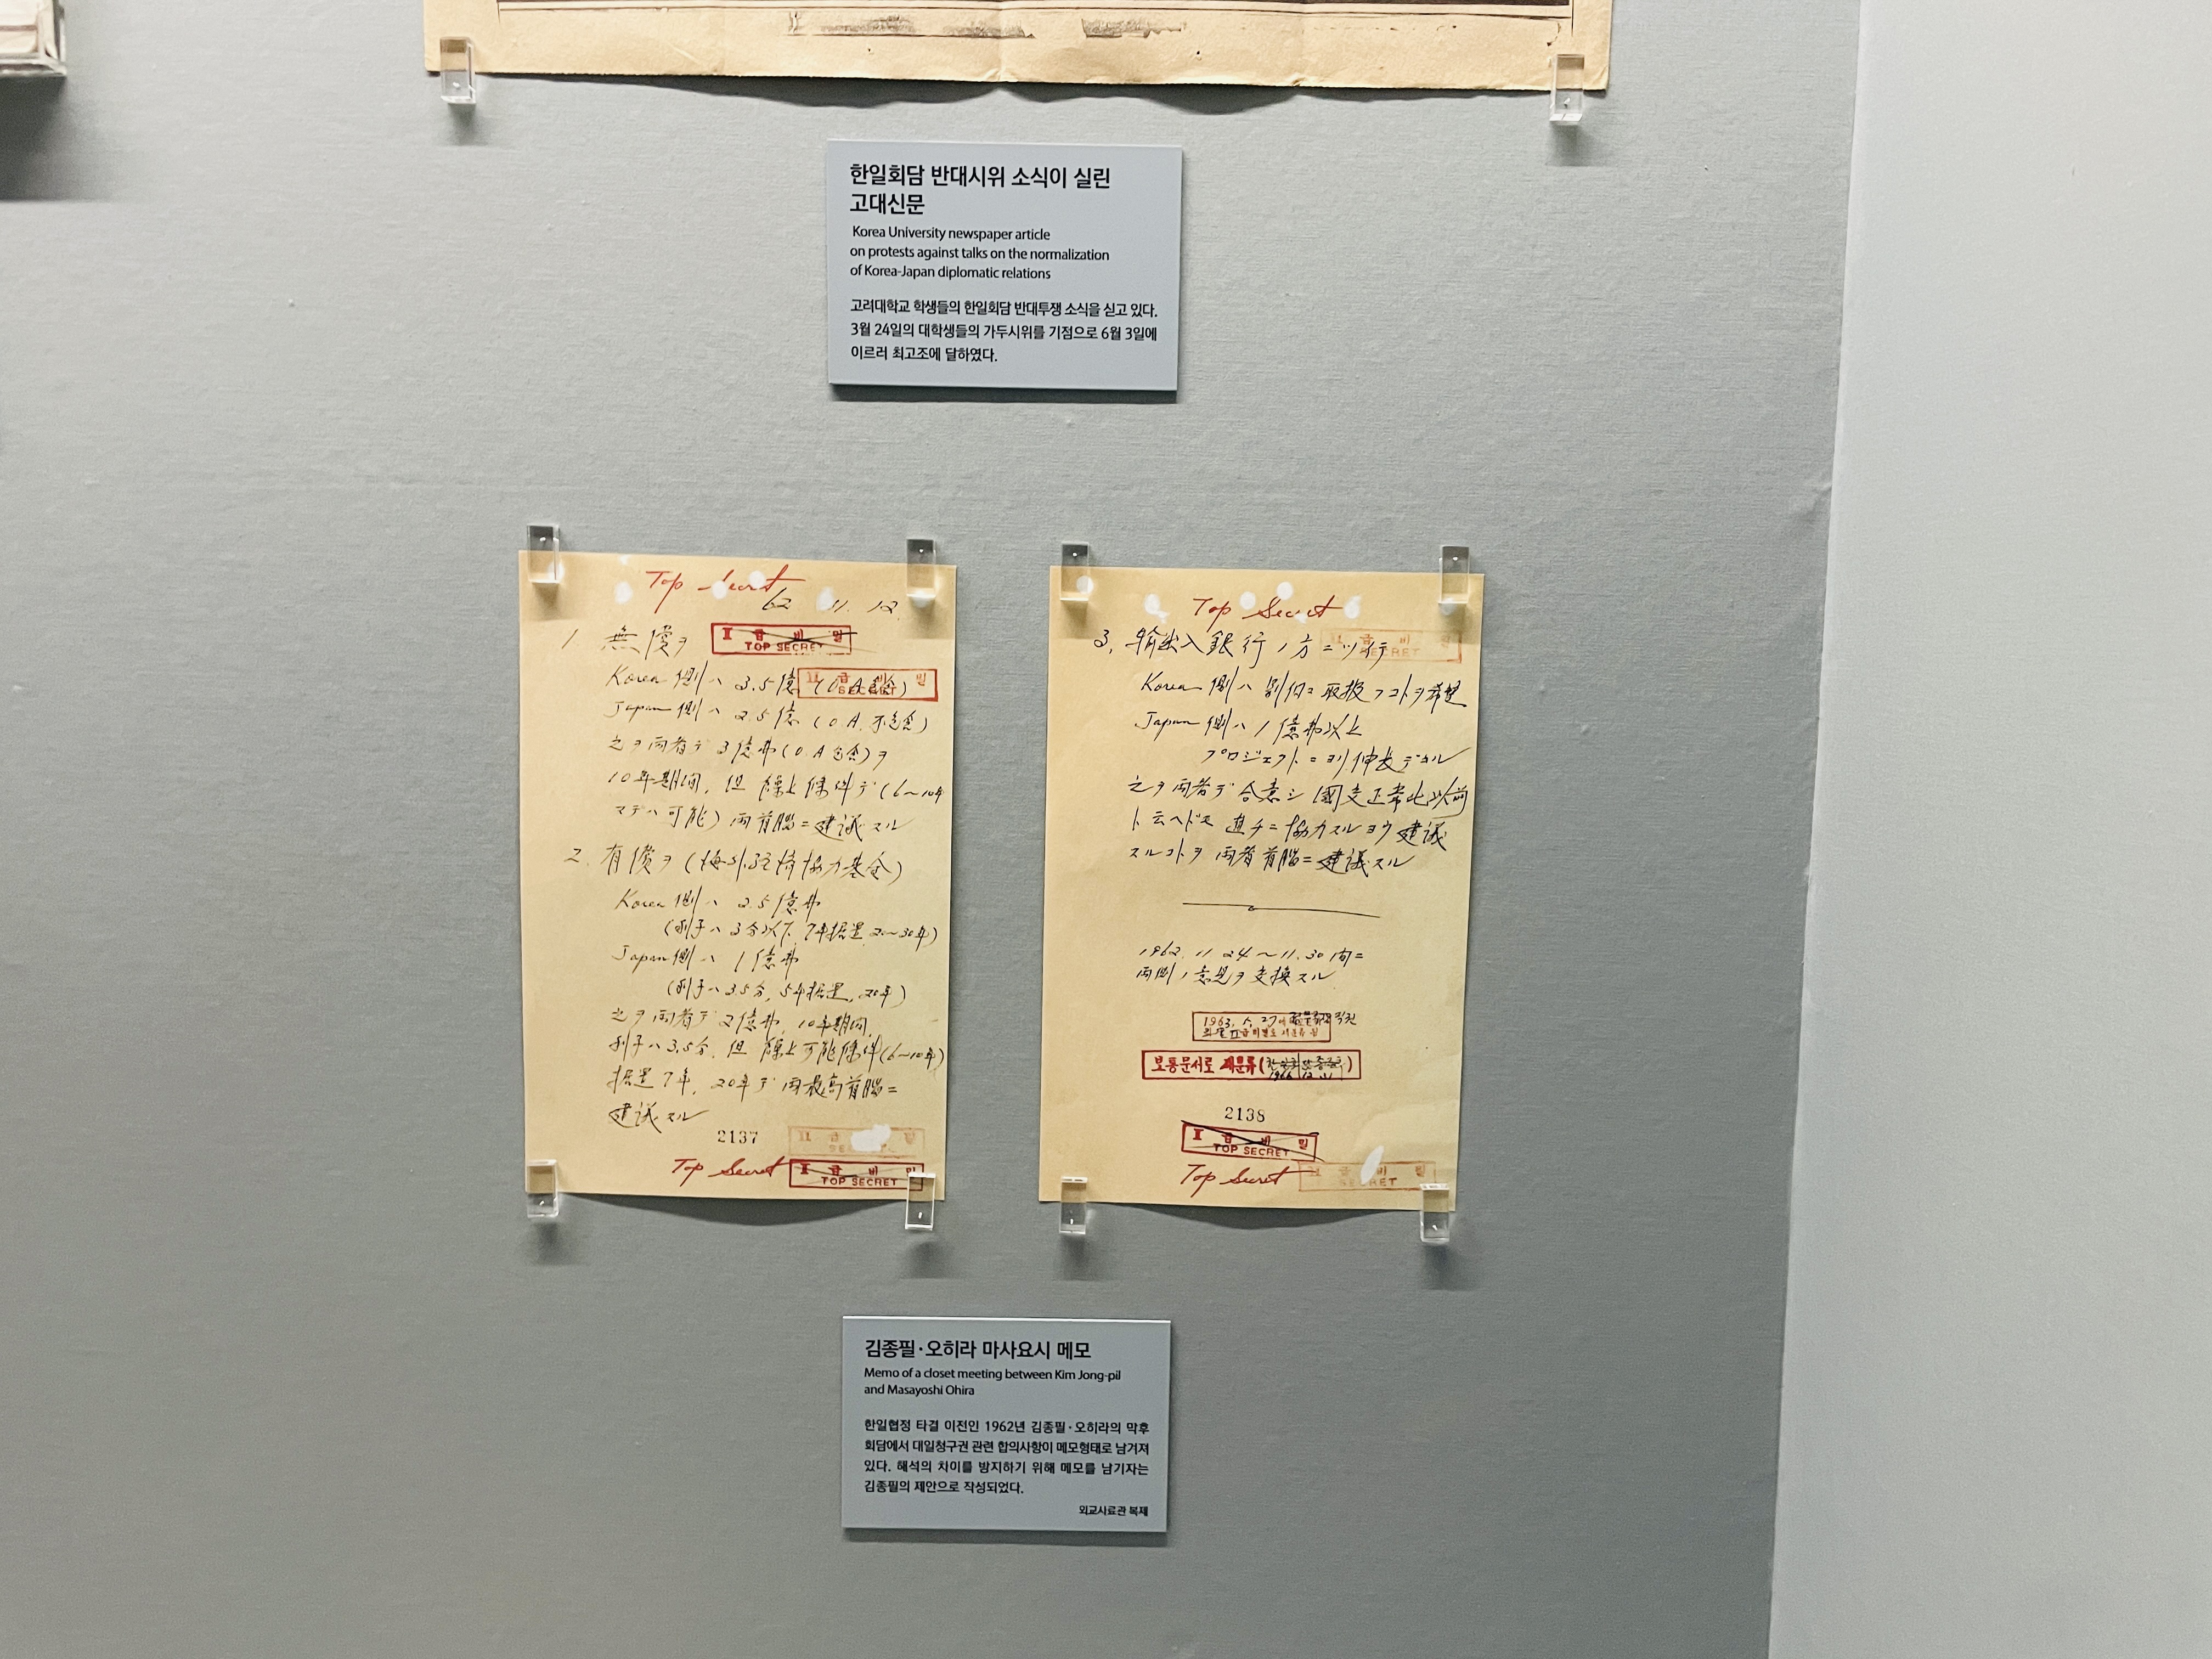 한일회담 반대시위 소식이 실린
고대신문
Korea University newspaper article
on protests against talks on the normalization
of Korea-Japan diplomatic relations
고려대학교 학생들의 한일회담 반대투쟁 소식을 싣고 있다.
3월 24일의 대학생들의 가두시위를 기점으로 6월 3일에
이르러 최고조에 달하였다.
Top Secret
62 11. 12.
1 無償ヲ
I 급 비 밀
TOP SECRET
Korea側ハ 3.5億 (O.A 包含)
II 급 비 밀
SECRET
Japan側ハ 2.5億 (O.A. 不包含)
之ヲ両者デ 3億弗(O.A包含)ヲ
10年期間, 但 繰上條件デ(6~10年
マデハ可能) 両首脳=建議スル
2. 有償ヲ(海外経済協力基金)
Korea側ハ 2.5億弗
(利子ハ3分以下, 7年据置, 20~30年)
Japan側ハ 1億弗
(利子ハ3.5分, 5年据置, 20年)
之ヲ両者デ2億弗, 10年期間,
利子ハ3.5分, 但 繰上可能條件(6~10年)
据置7年, 20年デ両最高首脳=
建議スル
2137
II 급 비 밀
SECRET
Top Secret
I 급 비 밀
TOP SECRET
Top Secret
3, 輸出入銀行ノ方ニツイテ
II 급 비 밀
SECRET
Korea側ハ別個ニ取扱フコトヲ希望
Japan側ハ1億弗以上
プロジェクトニヨリ伸長デキル
之ヲ両者デ合意シ國交正常化以前
ト云ヘドモ直チニ協力スルヨウ建議
スルコトヲ両者首脳=建議スル
1962. 11 24~11.30 間=
両側ノ意見ヲ交換スル
1963. 5, 27
보통문서로 재분류(
1966 12
2138
I 급 비 밀
TOP SECRET
Top Secret
II 급 비 밀
SECRET
김종필·오히라 마사요시 메모
Memo of a closet meeting between Kim Jong-pil
and Masayoshi Ohira
한일협정 타결 이전인 1962년 김종필·오히라의 막후
회담에서 대일청구권 관련 합의사항이 메모형태로 남겨져
있다. 해석의 차이를 방지하기 위해 메모를 남기자는
김종필의 제안으로 작성되었다.
외교사료관 복제